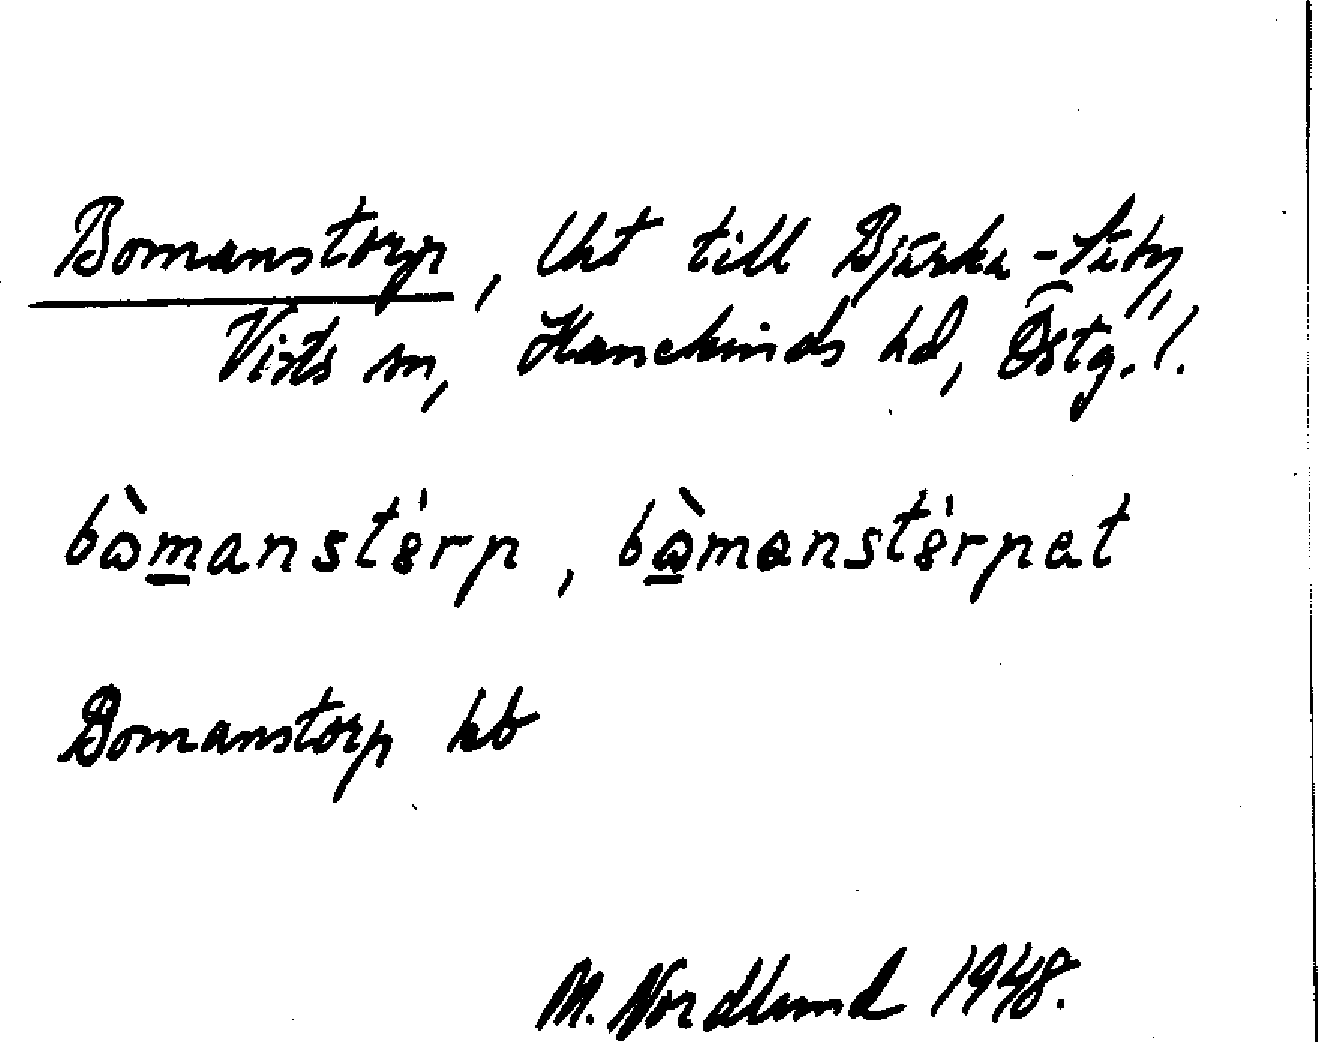 Bomanstorp, lht till Bjärka-Säby
Vists sn, Hanekinds hd, Östg. l.
bὼmanstɵ́rp, bὼmanstɵ́rpat
Bomanstorp kb
M. Nordlund 1948.